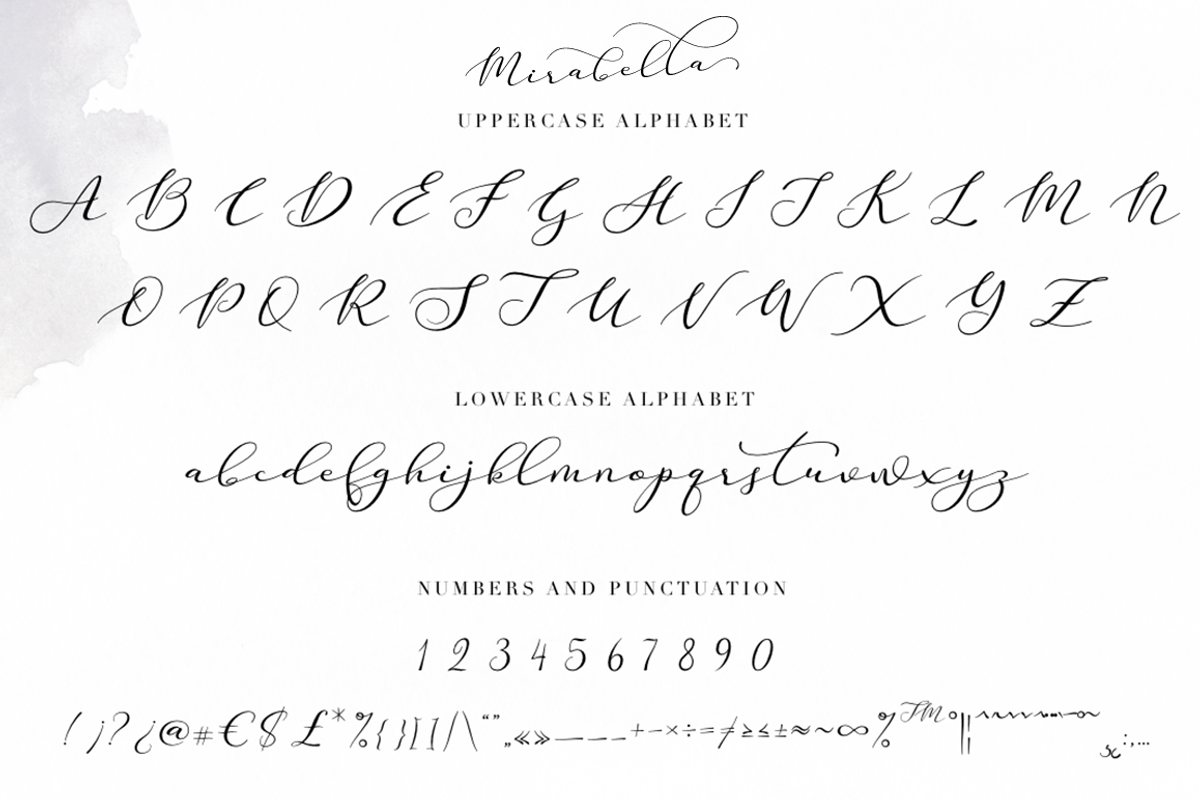 Mirabella
UPPERCASE ALPHABET
A B C D E F G H I J K L M N
O P Q R S T U V W X Y Z
LOWERCASE ALPHABET
abcdefghijklmnopqrstuvwxyz
NUMBERS AND PUNCTUATION
1 2 3 4 5 6 7 8 9 0
! ¡ ? ¿ @ # € $ £ * % { } [ ] / \ “ ” „ « » — – _ + − × ÷ = ≠ ≥ ≤ ± ≈ ~ ∞ % TM ° | ¦ : , …